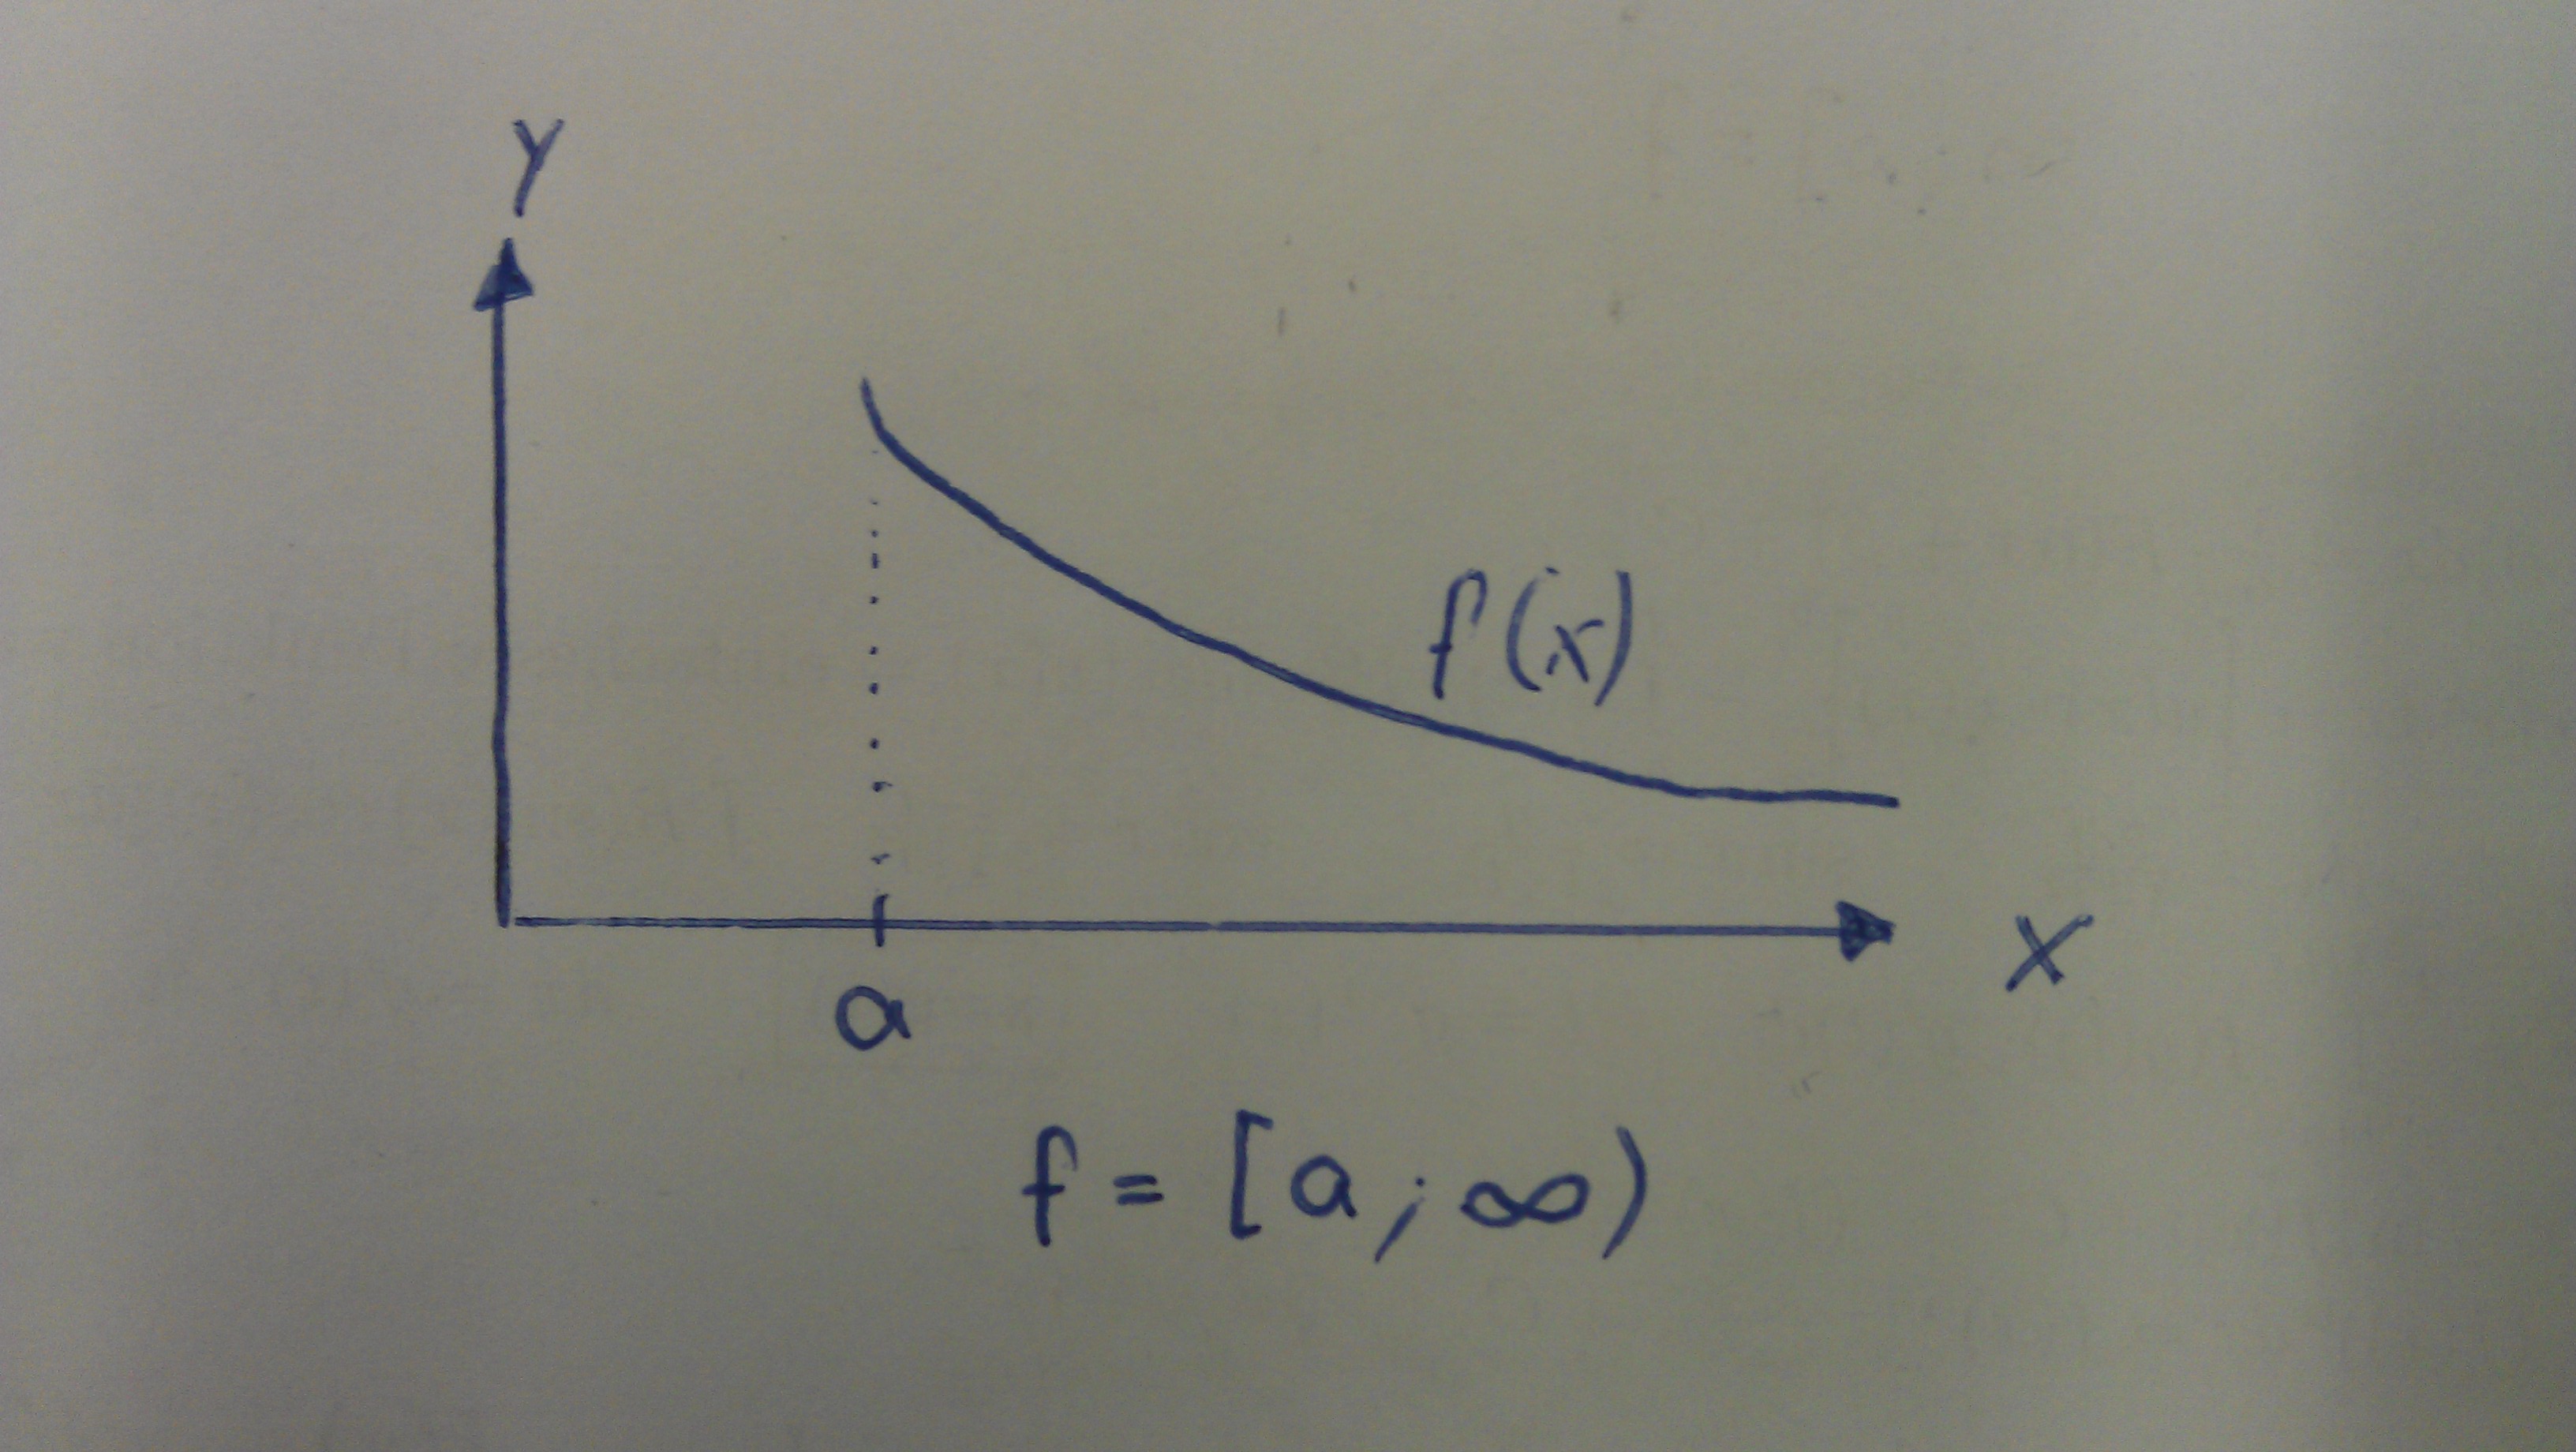 y
f(x)
x
a
f = [a ; ∞)